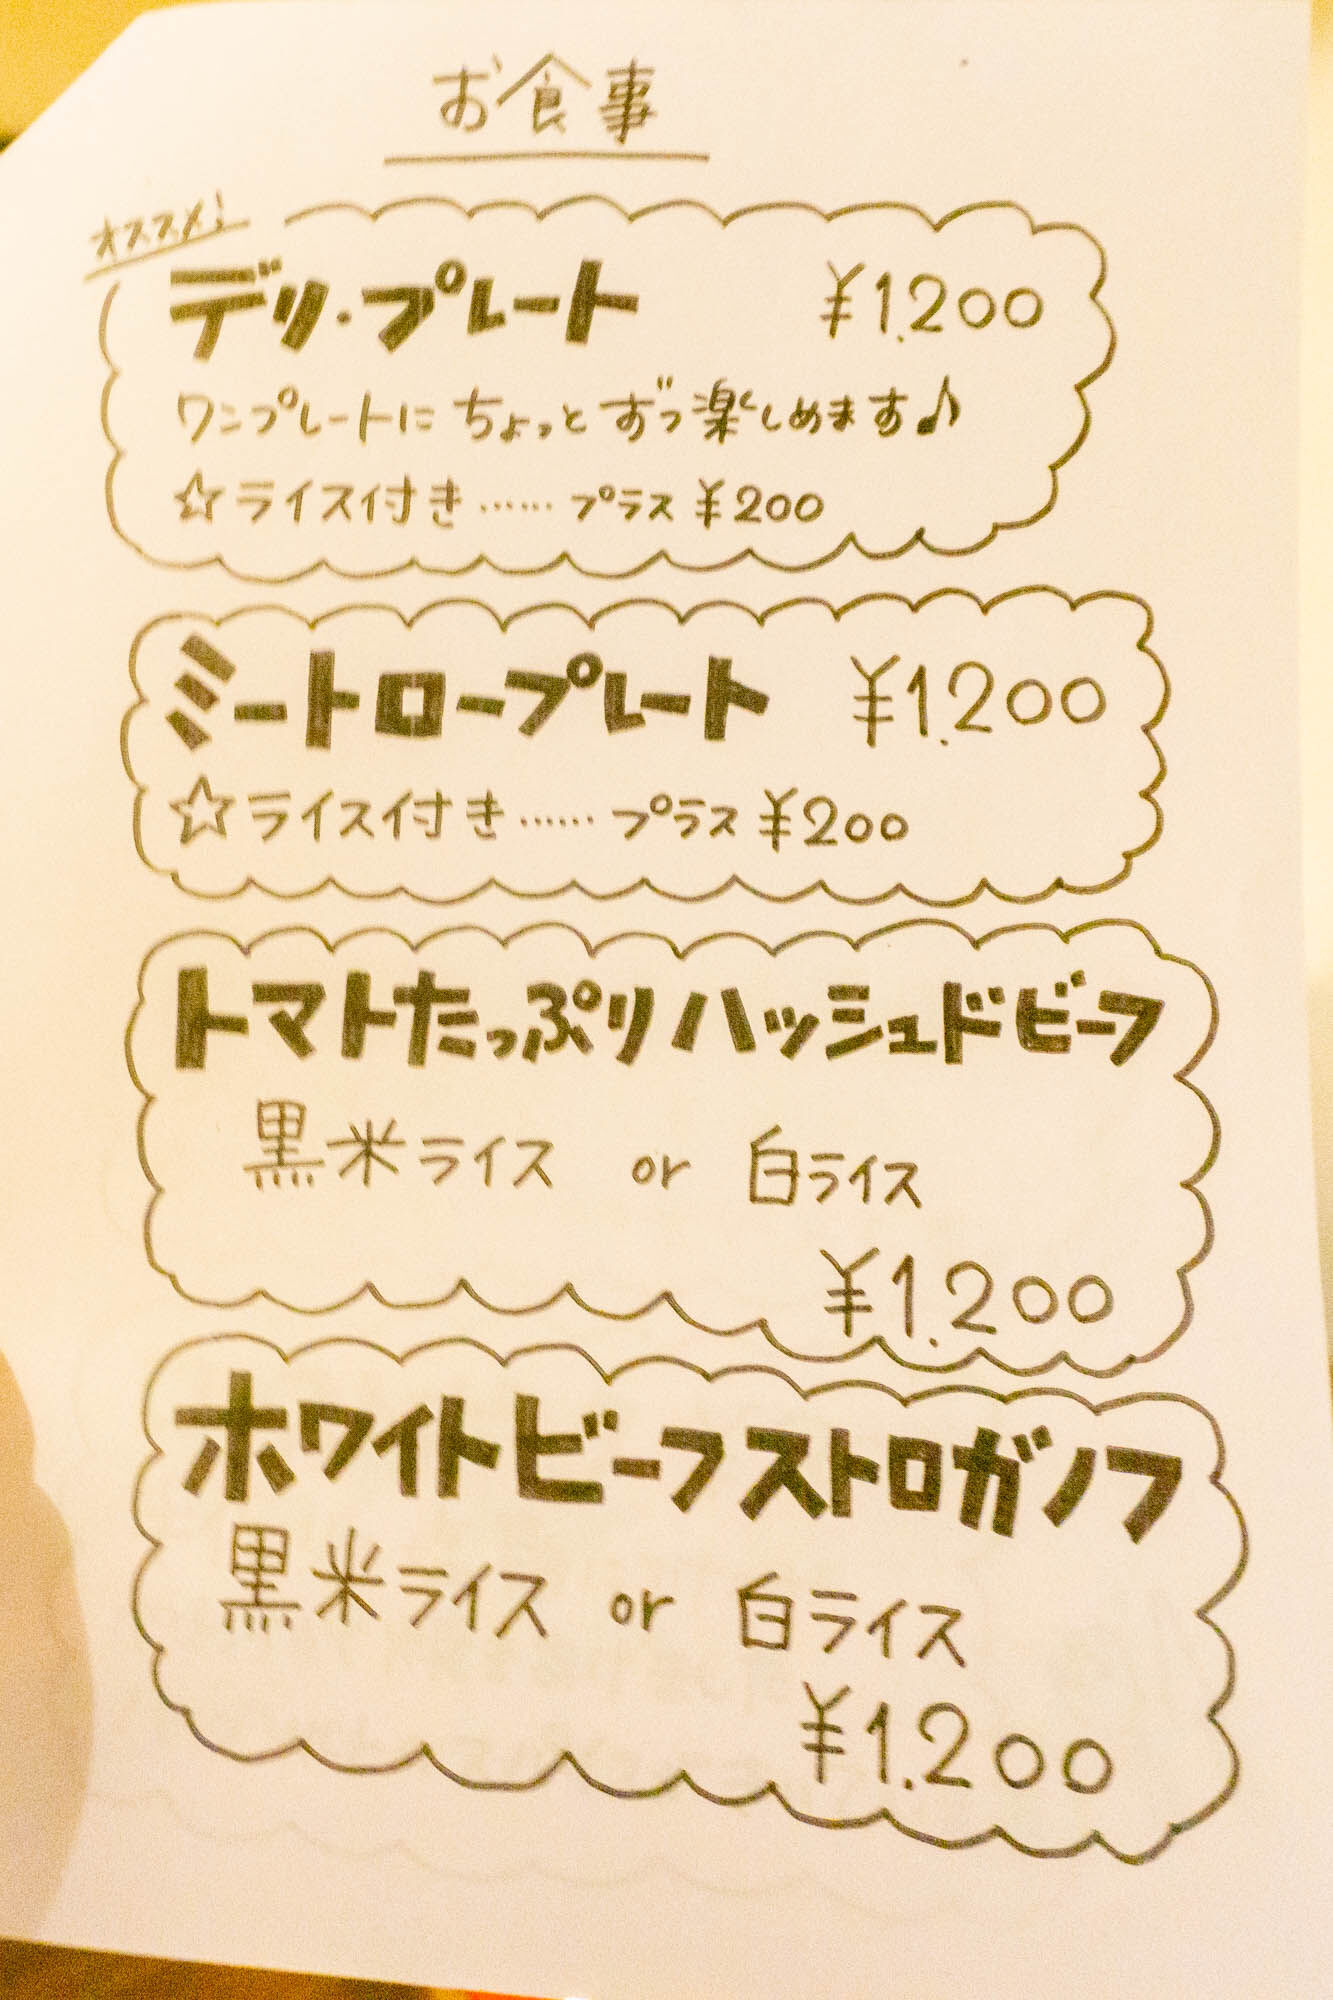 お食事
オススメ!
デリ・プレート ¥1.200
ワンプレートに ちょっと ずつ 楽しめます♪
☆ライス付き…… プラス ¥200
ミートロープレート ¥1.200
☆ライス付き…… プラス ¥200
トマトたっぷりハッシュドビーフ
黒米ライス or 白ライス
¥1.200
ホワイトビーフストロガノフ
黒米ライス or 白ライス
¥1.200